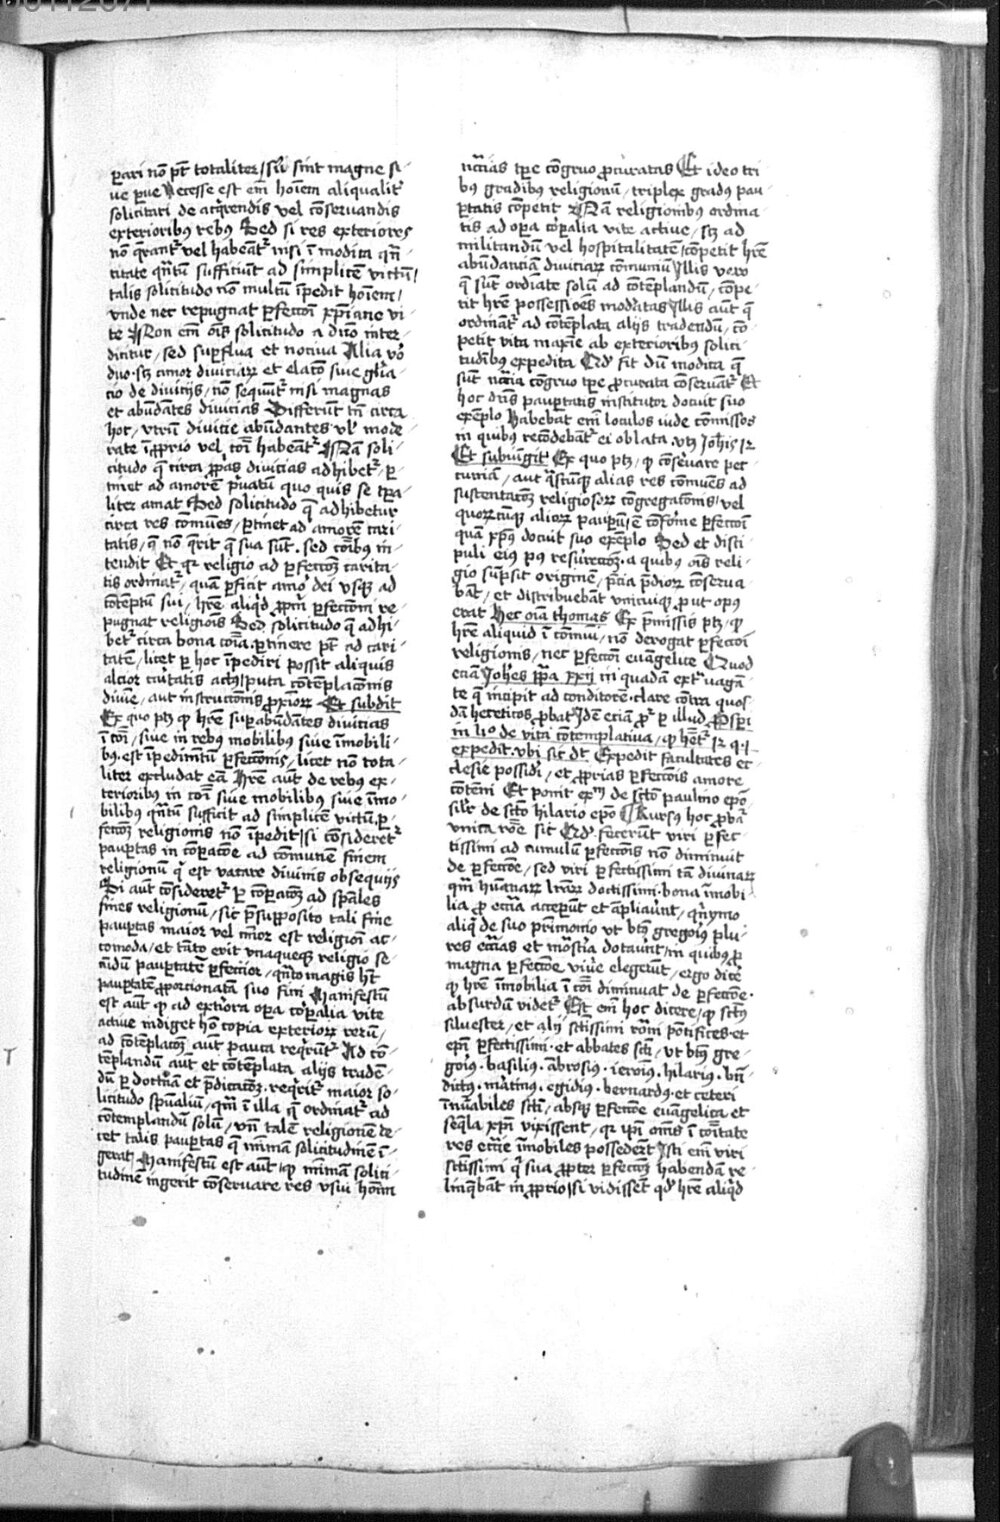 parari nō pt̄ totaliter / siu͛ sint magne si-
ue parue Necesse est em̄ hoīem aliqualit͛
solicitari de acq̄rendis vel cōseruandis
exterioribꝰ rebꝰ Sed si res exteriores
nō q̄rant͛ vel habeāt͛ nisi ī modica qn̄-
titate qn̄tū sufficiūt ad simplicē victū /
talis solicitudo nō multū īpedit hoīem /
vnde nec repugnat ꝑfectōi xp̄iane vi-
te Non em̄ oīs solicitudo a dn̄o inter-
dicitur / sed suꝑflua et nociua Alia vo͛
duo · scꝫ amor diuiciaꝝ et elatō siue gl̄ia-
cio de diuicijs / nō sequūt͛ nisi magnas
et abūdātes diuicias Differūt tn̄ circa
hoc / vtrū diuicie abūdantes vl͛ mode-
rate ī ꝓprio vel cōi habeāt͛ Nam soli-
citudo q̄ circa ꝓpas diuicias adhibet͛ / ꝑ-
tinet ad amorē pͥuatū quo quis se tꝑa-
liter amat Sed solicitudo q̄ adhibetur
circa res cōmues / ꝑtinet ad amorē cari-
tatis / q̄ nō q̄rit q̄ sua sūt · sed cōībꝰ in-
tendit Et qꝛ religio ad ꝑfectōꝫ carita-
tis ordinat͛ / quam ꝑficit amo͛ dei vsqꝫ ad
cōtēptū sui / hr̄e aliqͥd ꝓpͥm ꝑfectōni re-
pugnat religiōis Sed solicitudo q̄ adhi-
bet͛ circa bona cōia · ꝑtinere pt̄ ad cari-
tatē / licet ꝑ hoc īpediri possit aliquis
alcior caͥtatis actꝰ / puta cōtēplacōnis
diuine / aut instructōnis ꝓxīoꝝ Et subdit
Ex quo ptꝫ ꝙ hr̄e suꝑabūdātes diuicias
ī cōi / siue in rebꝰ mobilibꝰ siue īmobili-
bꝰ · est īpedimētū ꝑfectōnis / licet nō tota-
liter excludat eā Hr̄e aūt de rebꝰ ex-
terioribꝰ in cōi siue mobilibꝰ siue īmo-
bilibꝰ qn̄tū sufficit ad simplicē victū / ꝑ-
fectōꝫ religionis nō īpedit / si cōsideret͛
pauꝑtas in cōꝑacōe ad cōmunē finem
religionū qͥ est vacare diuinis obsequijs
Si aūt cōsideret͛ ꝑ cōꝑacōꝫ ad sp̄ales
fines religionū / sic p̄supposito tali fine
pauꝑtas maior vel mīor est religiōi ac-
comoda / et tāto erit vnaqueqꝫ religio se-
cūdū pauꝑtatē ꝑfectior / qn̄to magis hꝫ
pauꝑtatē ꝓporcionatā suo fini Manifestū
est aūt ꝙ ad ext͛iora oꝑa corꝑalia vite
actiue indiget hō copia exterioꝝ rerū /
ad cōtēplacōꝫ aūt pauca req̄rūt͛ Ad cō-
tēplandū aūt et cōtēplata alijs tradē-
dū ꝑ doctͥnā et p̄dicacōꝫ · req̄rit͛ maior so-
licitudo spūaliū / qͣm ī illa q̄ ordinat͛ ad
cōtemplandū solū / vn̄ talē religionē de-
cet talis pauꝑtas q̄ mīmam solicitudinē ī-
gerat / Manifestū est aūt ꝙ mīmam solici-
tudinē ingerit cōseruare res vsui hoīm
nc̄cias tꝑe cōgruo ꝓcuratas Et ideo tri-
bꝰ gradibꝰ religionū / triplex gradꝰ pau-
ꝑtatis cōpetit Nam religionibꝰ ordina-
tis ad oꝑa corꝑalia vite actiue / scꝫ ad
militandū vel hospitalitatē / cōpetit hr̄e
abūdanciā diuiciaꝝ cōmuniū Illis vero
q̄ sūt ordiate solū ad cōtēplandū / cōpe-
tit hr̄e possessiōes mod͛atas Illis aūt q̄
ordināt͛ ad cōtēplata alijs tradendū / cō-
petit vita maxīe ab exterioribꝰ solici-
tudībꝰ expedita Qd͛ fit dū modica q̄
sūt nc̄cia cōgruo tꝑe ꝓcurata cōseruāt͛ Et
hoc dn̄s pauꝑtatis institutor docuit suo
exēplo Habebāt em̄ loculos iude cōmissos
in quibꝰ recōdebāt͛ ei oblata · vtꝫ Joh̄is 12
Et subiungit Ex quo ptꝫ / ꝙ cōseruare pec-
cuniā / aut qͣscūqꝫ alias res cōmues ad
sustentacōꝫ religiosoꝝ cōgregacōnis / vel
quoꝝcūqꝫ alioꝝ pauꝑum / ē cōforme ꝑfectōi
quā xp̄us docuit suo exēplo Sed et disci-
puli eiꝰ pꝰ resurrectōꝫ · a quibꝰ oīs reli-
gio sūpsit originē / p̄cia p̄dioꝝ cōserua-
bāt / et distribuebāt vnicuiqꝫ ꝓut opꝰ
erat Hec oīa thomas Ex p̄missis ptꝫ / ꝙ
hr̄e aliquid ī cōmui / nō derogat ꝑfectōi
religionis / nec ꝑfectōi euāgelice Quod
eciā Joh͛es ppa xxij in quadā ext͛uagā-
te q̄ incipit ad conditorē · clare cōtra quos-
dā hereticos ꝓbat Idē eciā ꝓ͛ ꝑ illud Prosꝑi
in li͛o de vita cōtemplatiua / ꝙ hēt͛ 12 q · 1 ·
expedit · vbi sic dr̄ Expedit facultates ec-
clesie possideri / et ꝓprias ꝑfectōis amore
cōtēni Et ponit exᵐ de sc̄to paulino epō
silr͛ de sc̄to hilario epō Rursꝰ hoc ꝓbat͛
vnica rōe sic Qd͛ fecerūt viri ꝑfec-
tissimi ad cumulū ꝑfectōis nō diminuit
de ꝑfectōe / sed viri ꝑfectissimi tā diuinaꝝ
qͣm hūanaꝝ lr̄aꝝ doctissimi · bona īmobi-
lia ꝓ ecc̄ia acceꝑūt et āpliauūt / qͥnymo
aliqͥ de suo pͥmonio vt btꝰ gregoriꝰ plu-
res ecc̄ias et mōst͛ia dotauūt / in quibꝰ ꝓ
magna ꝑfectōe viue͛ elegerūt / ergo dice͛
ꝙ hr̄e īmobilia ī cōi diminuat de ꝑfectōe ·
absurdū videt͛ Est em̄ hoc dicere / ꝙ sc̄tꝰ
siluester / et alij sc̄tissimi romͣi pōtifices · et
epī ꝑfectissimi · et abbates sc̄ti / vt btꝰ gre-
goriꝰ · basiliꝰ · ābrosiꝰ · ieronīꝰ · hilariꝰ · bn̄-
dictꝰ · martinꝰ · egidiꝰ · bernardꝰ · et ceteri
īnūabiles sc̄ti / absqꝫ ꝑfectōe euāgelica et
seqͣla xp̄i vixissent / qꝛ ip̄i om̄s ī cōitate
res ecc̄ie īmobiles possederūt Isti em̄ viri
sc̄tissimi qͥ sua ꝓpter ꝑfectōꝫ habendā re-
linq̄bāt in ꝓprio / si vidissēt qd͛ hr̄e aliqͥd